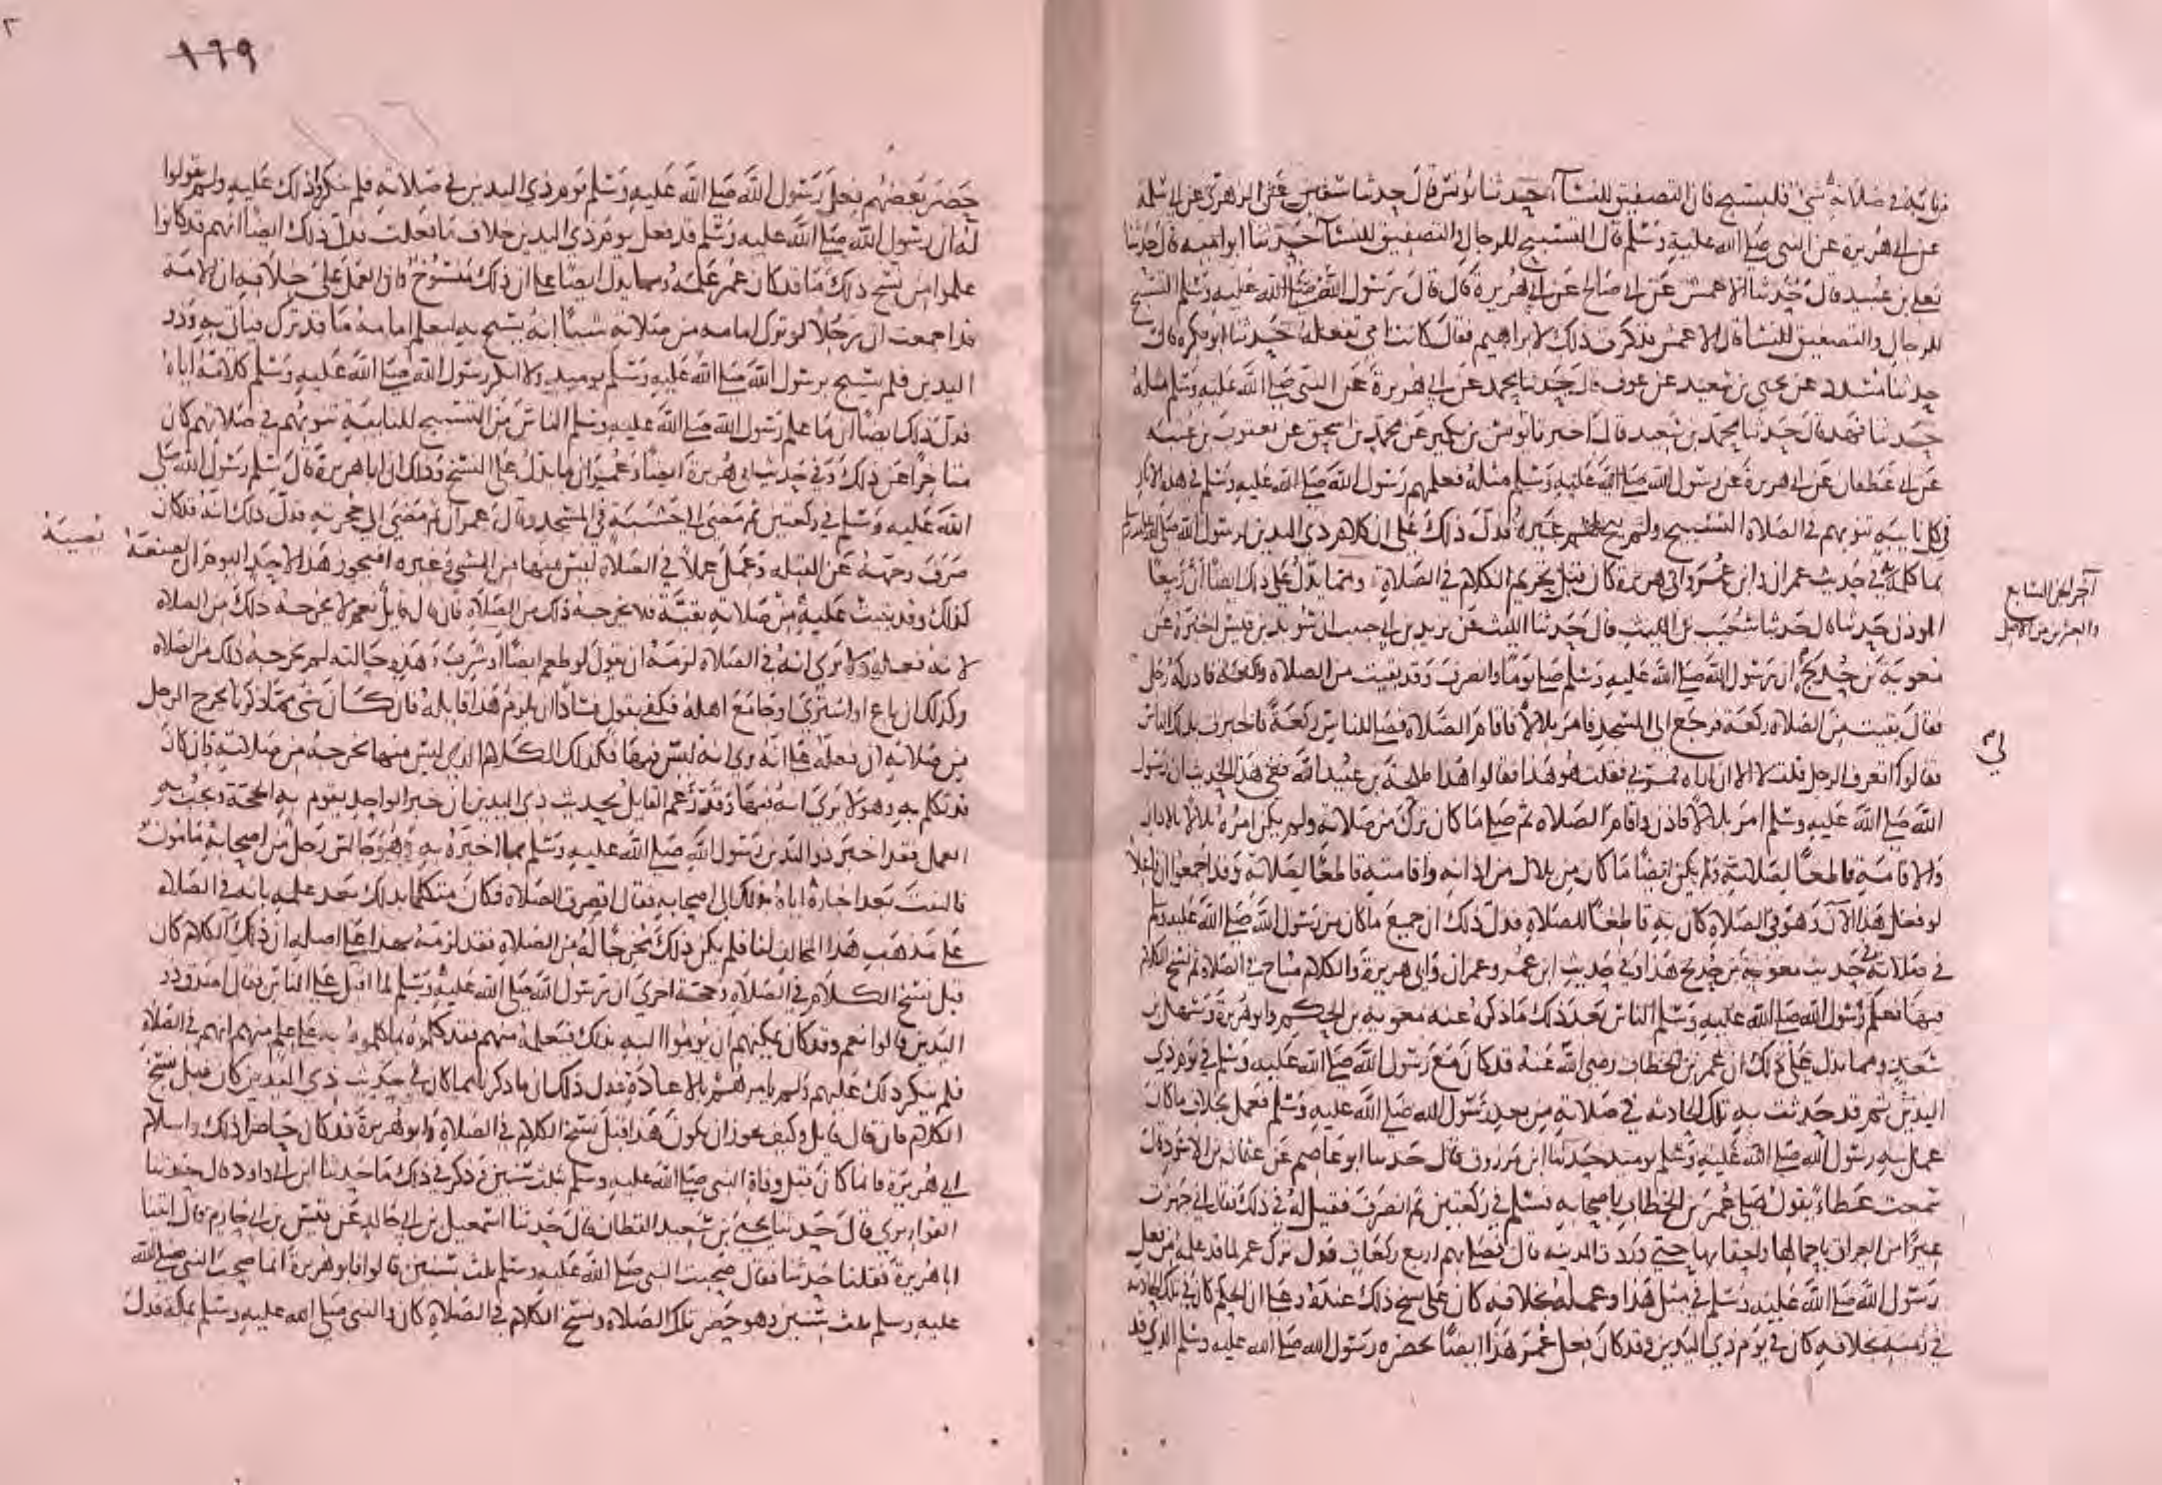 نابه في صلاته شيء فليسبح فان التصفيق للنساء حدثنا يونس قال حدثنا سفين عن الزهري عن ابي سلمة
عن ابي هريرة عن النبي صلى الله عليه وسلم قال التسبيح للرجال والتصفيق للنساء حدثنا ابو امية قال حدثنا
يعلى بن عبيد قال حدثنا الاعمش عن ابي صالح عن ابي هريرة قال قال رسول الله صلى الله عليه وسلم التسبيح
للرجال والتصفيق للنساء قال الاعمش فذكرت ذلك لابراهيم فقال كانت امي تفعله حدثنا ابو بكرة قال
حدثنا مسدد عن يحيى بن سعيد عن عوف قال حدثنا محمد عن ابي هريرة عن النبي صلى الله عليه وسلم مثله
حدثنا فهد قال حدثنا محمد بن سعيد قال اخبرنا يونس بن بكير عن محمد بن اسحق عن يعقوب بن عتبة
عن ابي غطفان عن ابي هريرة عن رسول الله صلى الله عليه وسلم مثله فعلمهم رسول الله صلى الله عليه وسلم في هذه الاثار
في كل نايبة تنوبهم في الصلاة التسبيح ولم يبح لهم غيره فدل ذلك على ان كلام ذي اليدين لرسول الله صلى الله عليه وسلم
بما كلمه في حديث عمران وابن عمر وابي هريرة كان قبل تحريم الكلام في الصلاة ومما يدل على ذلك ايضا ان ربيعا
الموذن حدثنا قال حدثنا شعيب بن الليث قال حدثنا الليث عن يزيد بن ابي حبيب ان سويد بن قيس اخبره عن
معوية بن حديج ان رسول الله صلى الله عليه وسلم صلى يوما وانصرف وقد بقيت من الصلاة ركعة فادركه رجل
فقال بقيت من الصلاة ركعة فرجع الى المسجد فامر بلالا فاقام الصلاة فصلى للناس ركعة فاخبرت بذلك الناس
فقالوا اتعرف الرجل قلت لا الا ان اراه فمر بي فقلت هو هذا فقالوا هذا طلحة بن عبيد الله ففي هذا الحديث ان رسول
الله صلى الله عليه وسلم امر بلالا فاذن واقام الصلاة ثم صلى ما كان ترك من صلاته ولم يكن امره بلالا بالاذان
والاقامة قاطعا لصلاته ولم يكن ايضا ما كان من بلال من اذانه واقامته قاطعا لصلاته وقد اجمعوا ان فاعلا
لو فعل هذا الان وهو في الصلاة كان به قاطعا للصلاة فدل ذلك ان جميع ما كان من رسول الله صلى الله عليه وسلم
في صلاته في حديث معوية بن حديج هذا وفي حديث ابن عمر وعمران وابي هريرة والكلام مباح في الصلاة ثم نسخ الكلام
فيها فعلم رسول الله صلى الله عليه وسلم الناس بعد ذلك ما ذكره عنه معوية بن الحكم وابو هريرة وسهل بن
سعد ومما يدل على ذلك ان عمر بن الخطاب رضي الله عنه قد كان مع رسول الله صلى الله عليه وسلم في يوم ذي
اليدين ثم قد حدثت به تلك الحادثة في صلاته من بعد رسول الله صلى الله عليه وسلم فعمل بخلاف ما كان
عمل به رسول الله صلى الله عليه وسلم يومئذ حدثنا ابن مرزوق قال حدثنا ابو عاصم عن عثمان بن الاسود قال
سمعت عطاء يقول صلى عمر بن الخطاب باصحابه فسلم في ركعتين ثم انصرف فقيل له في ذلك فقال اني جهزت
عيرا من العراق باحمالها واحقابها حتى وردت المدينة قال فصلى بهم اربع ركعات فدل ترك عمر لما قد علمه من فعل
رسول الله صلى الله عليه وسلم في مثل هذا وعمله بخلافه كان على نسخ ذلك عنده وعلى ان الحكم كان في تلك الحادثة
في زمنه بخلافه كان في يوم ذي اليدين وقد كان فعل عمر هذا ايضا بحضرة رسول الله صلى الله عليه وسلم الذي قد
آخر الجزء السابع
والعشرين من الاصل
١٦٩
حضر بعضهم فعل رسول الله صلى الله عليه وسلم يوم ذي اليدين في صلاته فلم ينكروا ذلك عليه ولم يقولوا
له ان رسول الله صلى الله عليه وسلم قد فعل يوم ذي اليدين خلاف ما فعلت فدل ذلك ايضا انهم قد كانوا
علموا من نسخ ذلك ما قد كان عمر علمه ومما يدل ايضا على ان ذلك منسوخ وان العمل على خلافه ان الامة
قد اجمعت ان رجلا لو ترك امامه من صلاته شيئا انه يسبح به ليعلم امامه ما قد ترك فياتي به وذو
اليدين فلم يسبح برسول الله صلى الله عليه وسلم يوميذ ولا انكر رسول الله صلى الله عليه وسلم كلامه اياه
فدل ذلك ايضا ان ما علم رسول الله صلى الله عليه وسلم الناس من التسبيح للنايبة تنوبهم في صلاتهم كان
متاخرا عن ذلك وفي حديث ابي هريرة ايضا وعمران ما يدل على النسخ وذلك ان ابا هريرة قال سلم رسول الله صلى
الله عليه وسلم في ركعتين ثم مضى الى خشبة في المسجد وقال عمران ثم مضى الى حجرته فدل ذلك انه قد كان
صرف وجهه عن القبلة وعمل عملا في الصلاة ليس منها من المشي وغيره افيجوز هذا لاحد اليوم ان يصيبه
كذلك وقد بقيت عليه من صلاته بقية فلا يخرجه ذلك من الصلاة فان قال قايل نعم لا يخرجه ذلك من الصلاة
لانه فعله ولا يرى انه في الصلاة لزمه ان يقول لو طعم ايضا او شرب وهذه حالته لم يخرجه ذلك من الصلاة
وكذلك ان باع او اشترى او جامع اهله فكفى بقول فسادا ان يلزم هذا قايله فان كان شي مما ذكرنا يخرج الرجل
من صلاته ان فعله على انه يرى انه ليس فيها فكذلك الكلام الذي ليس منها يخرجه من صلاته وان كان
قد تكلم به وهو لا يرى انه فيها وقد زعم القايل بحديث ذي اليدين ان خبر الواحد يقوم به الحجة ويجب به
العمل فقد اخبر ذو اليدين رسول الله صلى الله عليه وسلم بما اخبره به وهو رجل من اصحابه مامون
فالتفت بعد اخباره اياه بذلك الى اصحابه فقال اقصرت الصلاة فكان متكلما بذلك بعد علمه بانه في الصلاة
على مذهب هذا المخالف لنا فلم يكن ذلك مخرجا له من الصلاة فقد لزمه بهذا على اصله ان ذلك الكلام كان
قبل نسخ الكلام في الصلاة وحجة اخرى ان رسول الله صلى الله عليه وسلم لما اقبل على الناس فقال اصدق ذو
اليدين قالوا نعم وقد كان يمكنهم ان يوموا اليه بذلك فيعلمه منهم فقد كلموه بما كلموه به على علم منهم انهم في الصلاة
فلم ينكر ذلك عليهم ولم يامرهم بالاعادة فدل ذلك ان ما ذكرنا مما كان في حديث ذي اليدين كان قبل نسخ
الكلام فان قال قايل وكيف يجوز ان يكون هذا قبل نسخ الكلام في الصلاة وابو هريرة قد كان حاضرا ذلك واسلام
ابي هريرة فانما كان قبل وفاة النبي صلى الله عليه وسلم بثلث سنين وذكر في ذلك ما حدثنا ابن ابي داود قال حدثنا
القواريري قال حدثنا يحيى بن سعيد القطان قال حدثنا اسمعيل بن ابي خالد عن قيس بن ابي حازم قال اتينا
ابا هريرة فقلنا حدثنا فقال صحبت النبي صلى الله عليه وسلم ثلث سنين قالوا فابو هريرة انما صحب النبي صلى الله
عليه وسلم ثلث سنين وهو حضر تلك الصلاة ونسخ الكلام في الصلاة كان والنبي صلى الله عليه وسلم بمكة فدل